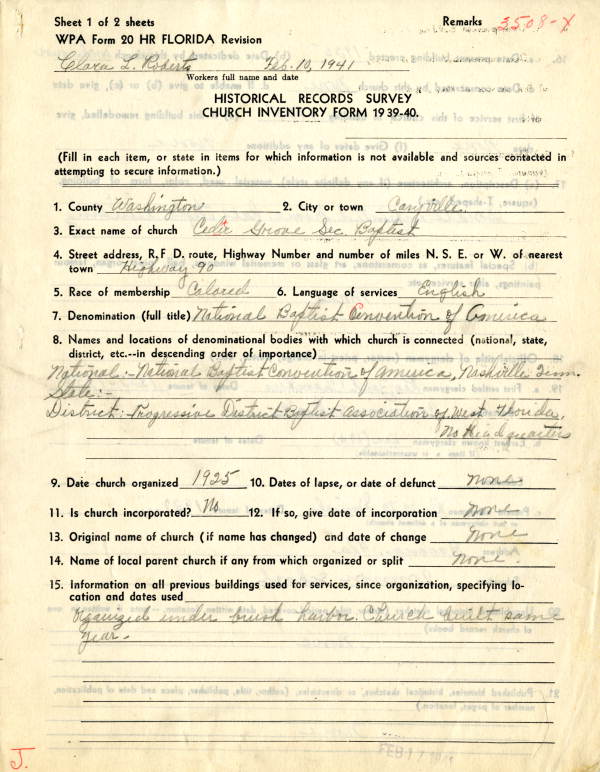 Sheet 1 of 2 sheets Remarks 3508-X
WPA Form 20 HR FLORIDA Revision
Clara L. Roberts Feb. 10, 1941
Workers full name and date
HISTORICAL RECORDS SURVEY
CHURCH INVENTORY FORM 1939-40.
(Fill in each item, or state in items for which information is not available and sources contacted in
attempting to secure information.)
1. County Washington 2. City or town Caryville
3. Exact name of church Cedir Grove Sec. Baptist
4. Street address, R, F D. route, Highway Number and number of miles N. S. E. or W. of nearest
town Highway 90
5. Race of membership Colored 6. Language of services English
7. Denomination (full title) National Baptist Convention of America
8. Names and locations of denominational bodies with which church is connected (national, state,
district, etc.--in descending order of importance)
National:- National Baptist Convention of America, Nashville Tenn.
State:-
District:- Progressive District Baptist Association of West Florida.
No Headquarters
9. Date church organized 1925 10. Dates of lapse, or date of defunct None
11. Is church incorporated? No 12. If so, give date of incorporation None
13. Original name of church (if name has changed) and date of change None
14. Name of local parent church if any from which organized or split None.
15. Information on all previous buildings used for services, since organization, specifying lo-
cation and dates used
Organized under brush harbor. Church built same
year.
J.
FEB 17